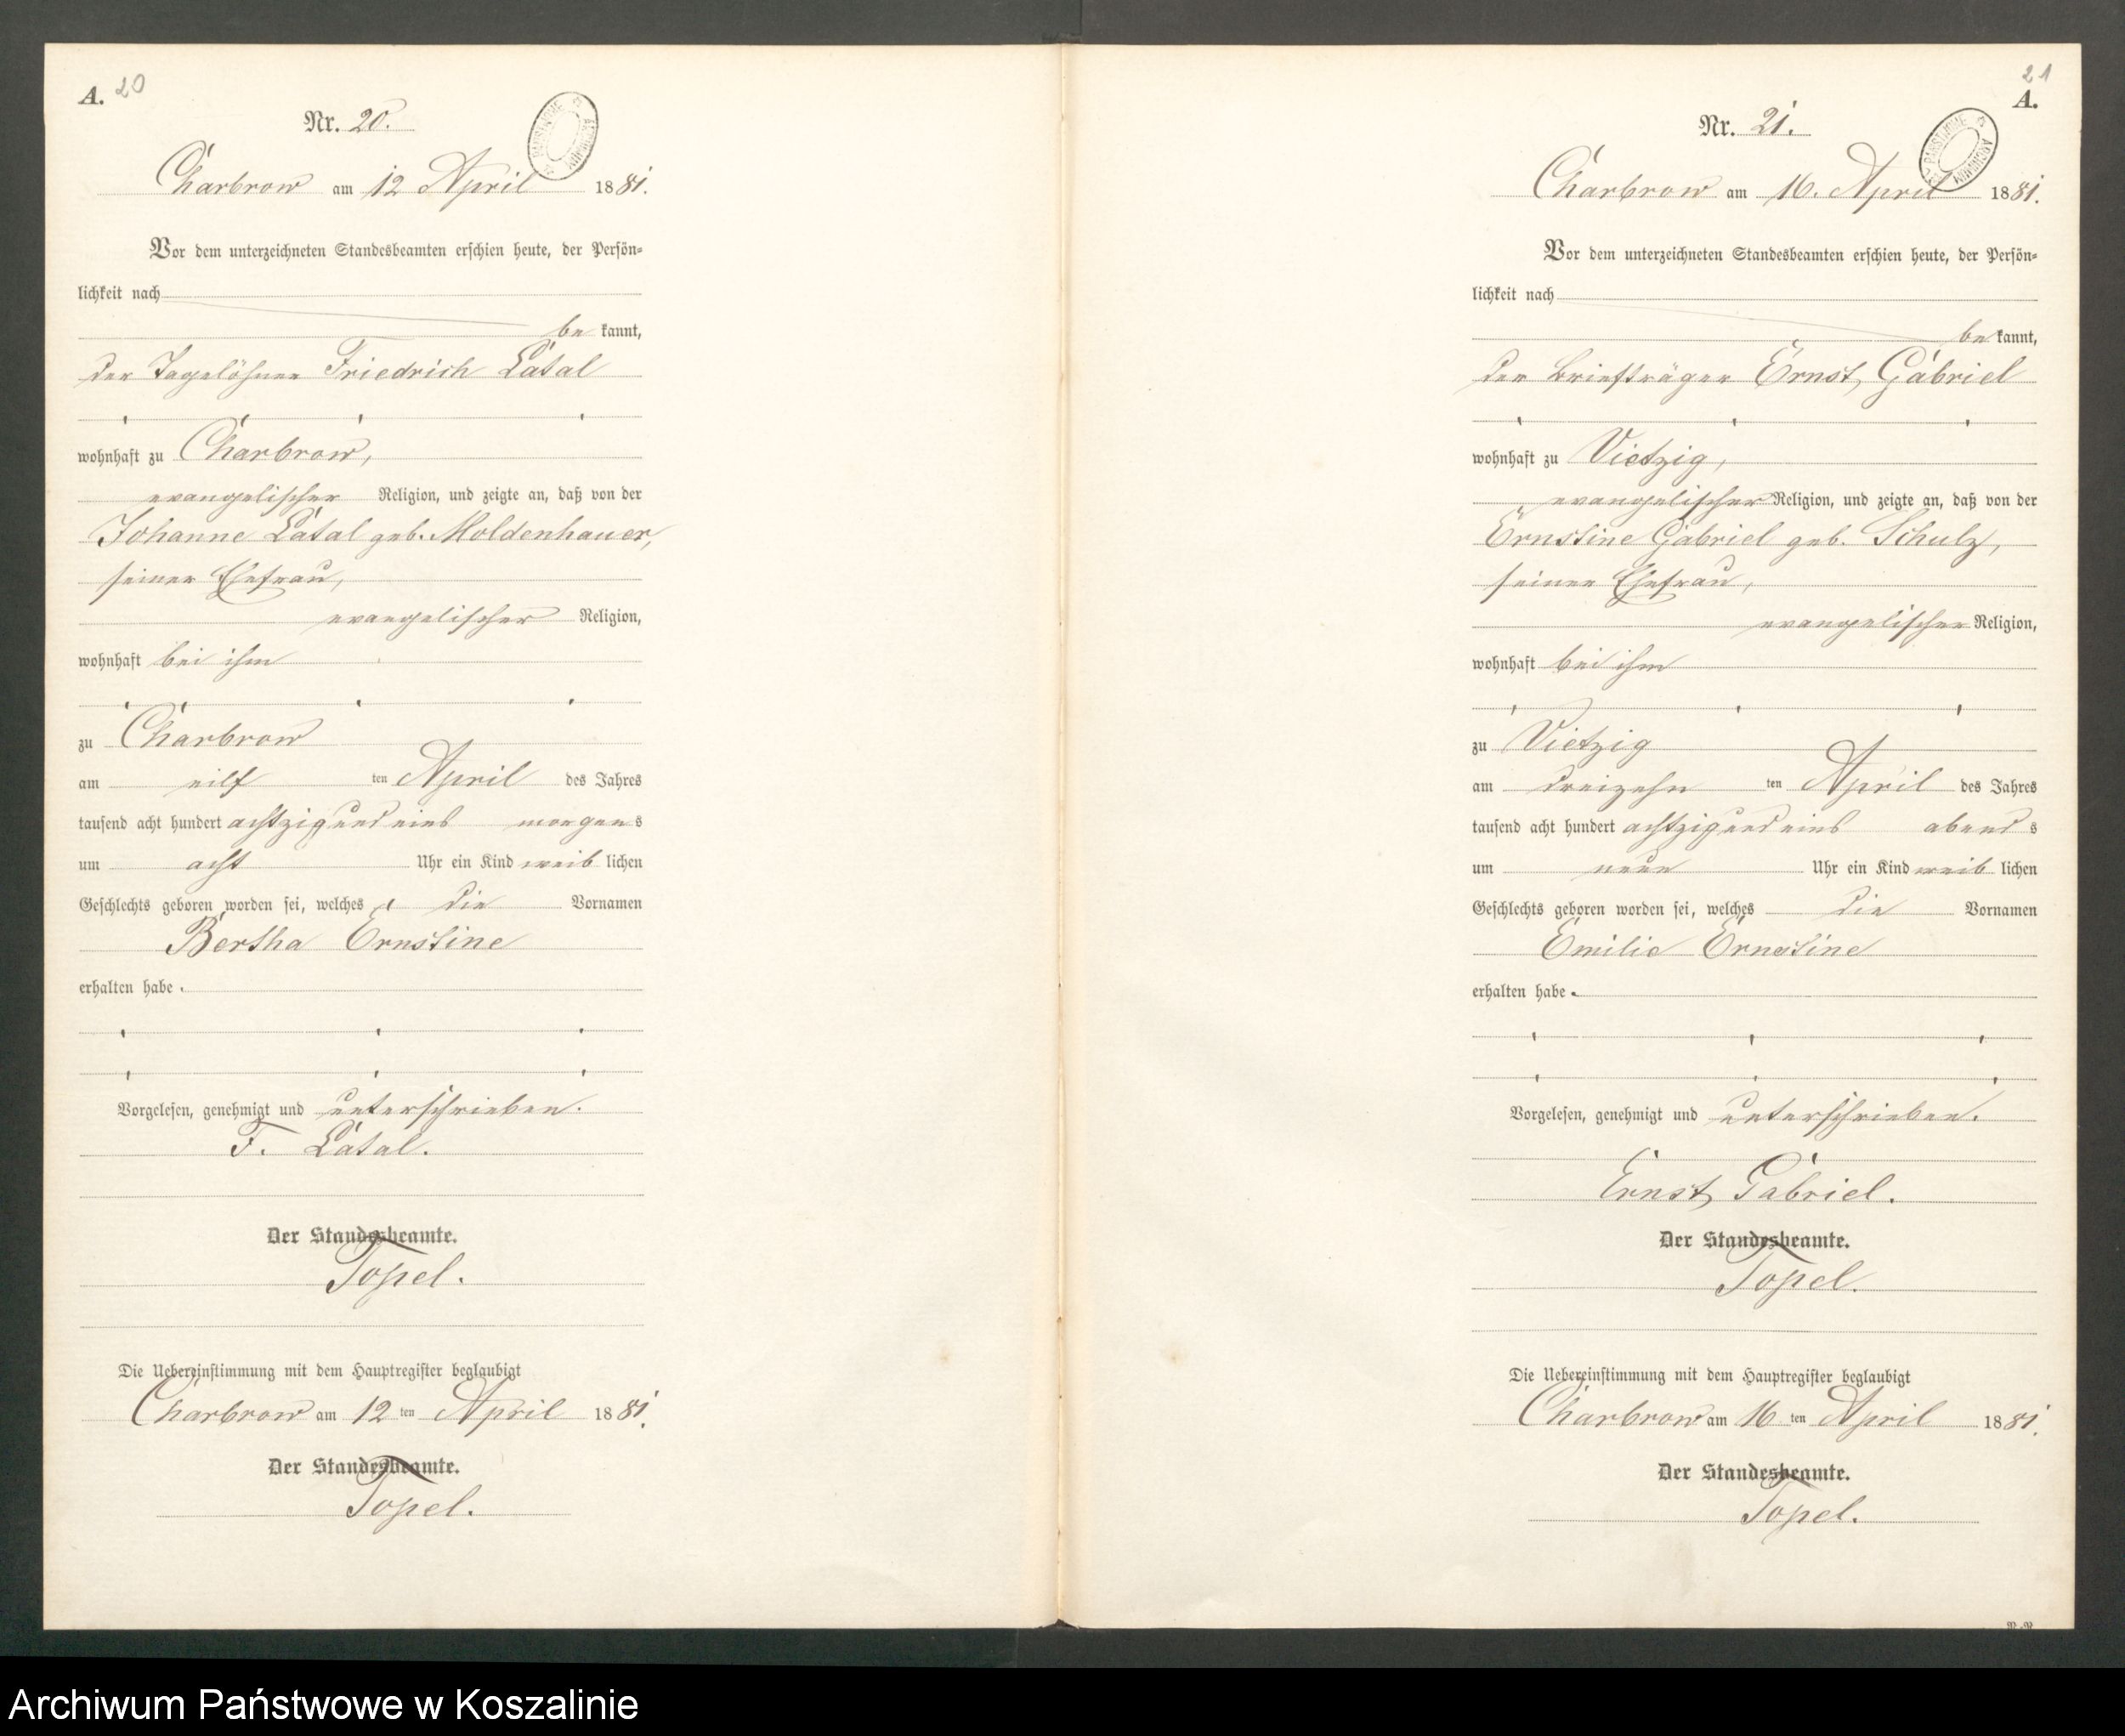 A. 20
Nr. 20.
Charbrow am 12 April 1881.
Vor dem unterzeichneten Standesbeamten erschien heute, der Persön-
lichkeit nach
be kannt,
der Tagelöhner Friedrich Latal
wohnhaft zu Charbrow,
evangelischer Religion, und zeigte an, daß von der
Johanne Latal geb. Moldenhauer,
seiner Ehefrau,
evangelischer Religion,
wohnhaft bei ihm
zu Charbrow
am eilf ten April des Jahres
tausend acht hundert achtzig und eins morgens
um acht Uhr ein Kind weib lichen
Geschlechts geboren worden sei, welches die Vornamen
Bertha Ernstine
erhalten habe.
Vorgelesen, genehmigt und unterschrieben.
F. Latal.
Der Standesbeamte.
Topel.
Die Uebereinstimmung mit dem Hauptregister beglaubigt
Charbrow am 12 ten April 1881.
Der Standesbeamte.
Topel.
21
A.
Nr. 21.
Charbrow am 16. April 1881.
Vor dem unterzeichneten Standesbeamten erschien heute, der Persön-
lichkeit nach
be kannt,
der Briefträger Ernst Gabriel
wohnhaft zu Vietzig,
evangelischer Religion, und zeigte an, daß von der
Ernstine Gabriel geb. Schulz,
seiner Ehefrau,
evangelischer Religion,
wohnhaft bei ihm
zu Vietzig
am dreizehn ten April des Jahres
tausend acht hundert achtzig und eins abend s
um neun Uhr ein Kind weib lichen
Geschlechts geboren worden sei, welches die Vornamen
Emilie Ernestine
erhalten habe.
Vorgelesen, genehmigt und unterschrieben.
Ernst Gabriel.
Der Standesbeamte.
Topel.
Die Uebereinstimmung mit dem Hauptregister beglaubigt
Charbrow am 16 ten April 1881.
Der Standesbeamte.
Topel.
Archiwum Państwowe w Koszalinie